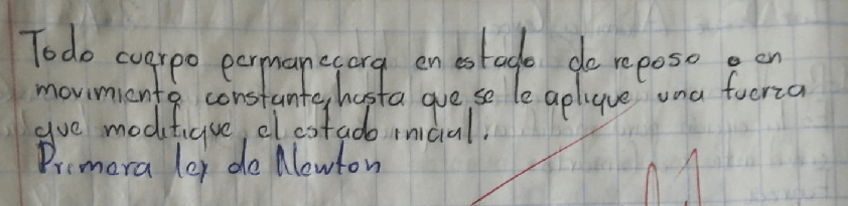 Todo cuerpo permanecera en estado de reposo o en
movimiento constante, hasta que se le aplique una fuerza
que modifique el estado inicial.
Primera ley de Newton